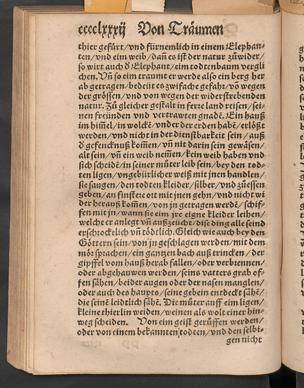 cccclxxxij Von Träumen
thier gefärt/ vnd fürnemlich in einem Elephan-
ten/ vnd ein weib/ dañ es ist der natur zůwider/
so wirt auch ď Elephant/ ein todtenbaum vergli
chen. Vñ so ein traumt er werde also ein berg her
ab getragen/ bedeit es zwifache gefahr/ vō wegen
der grössen/ vnd von wegen der widerstrebenden
natur. Zů gleicher gestalt in ferre land reisen/ sei-
nen freünden vnd vertrawten gnadē. Ein hauß
im him̄el/ in wolckē/ vnder der erden habē/ erlößt
werden/ vnd nicht in der dienstbarkeit sein/ auß
ď gefencknuß kom̄en/ vñ nit darin sein gewäsen/
als sein/ vñ ein weib nemen/ kein weib haben vnd
sich scheidē/ in seiner můter leib sein/ bey den tod-
ten ligen/ vngebürlicher weiß mit jnen handlen/
sie saugen/ den todten kleider/ silber/ vnd züessen
geben/ an finstere ort mit jnen gehn/ vnd nicht wi
der herauß kom̄en/ von jn getragen werdē/ schif-
fen mit jn/ wann sie eim
welcher er anlegt
erschrocklich vñ tödtlich. Gleich wie auch bey den
Göttern sein/ von jn geschlagen werden/ mit dem
mörsprachen/ ein gantzen bach auß trincken/ der
gipffel vom hauß herab fallen/ oder verbrennen/
oder abgehauwen werden/ seins vatters grab of-
fen sähen/ beider augen oder der nasen manglen/
oder auch des haupts/ seine gebein entdeckt sähē/
die seinē leidtlich sähē. Die můter auff eim ligen/
kleine thierlin weiden/ weinen als wolt einer hin-
weg scheiden. Von eim geist gerüffen werden/
oder von einem bekannten todten/ vnd den selbi-
gen nicht